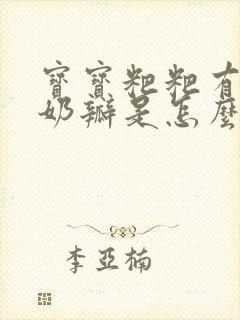 寶寶粑粑有
奶瓣是怎麼
李亞楠